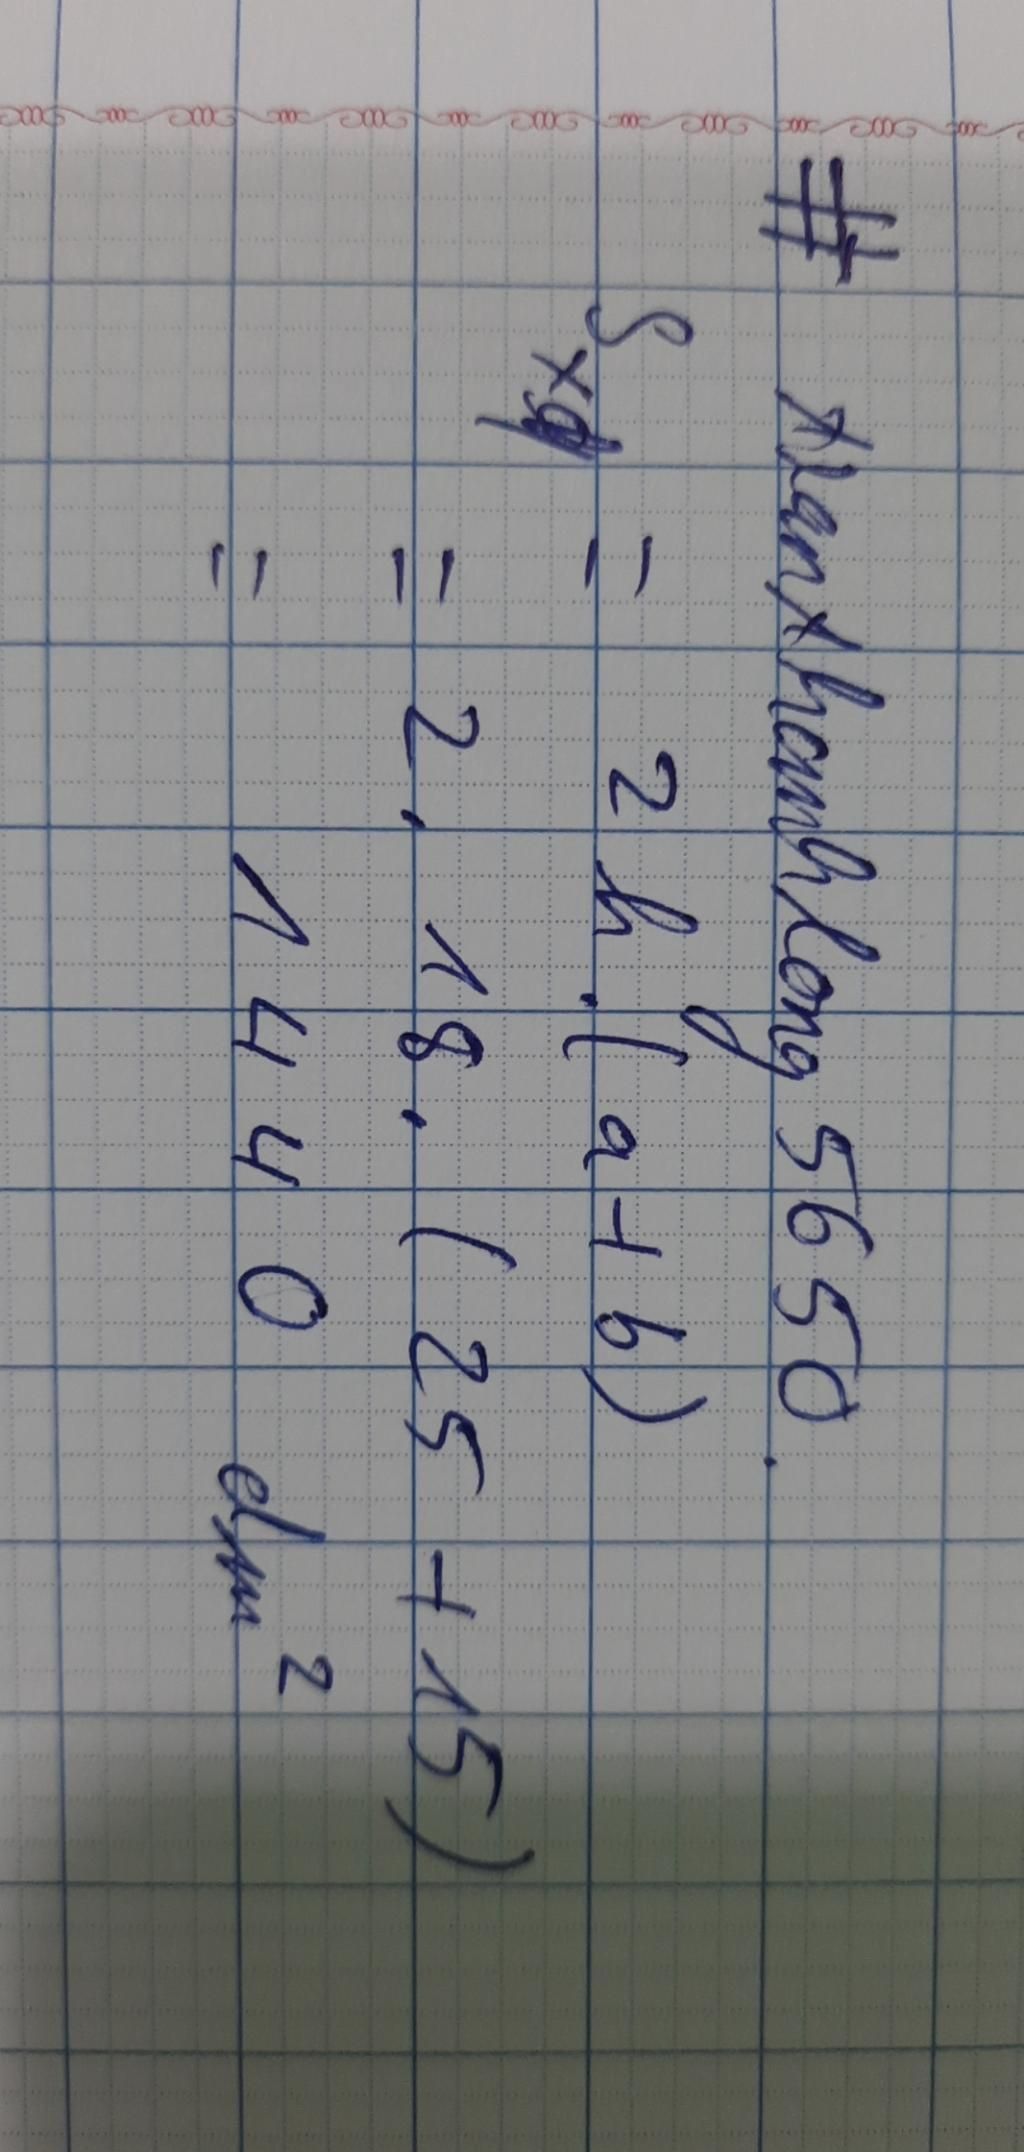 # tranthanhlong5650.
Sxq = 2h.(a+b)
= 2.18.(25+15)
= 1440 dm²